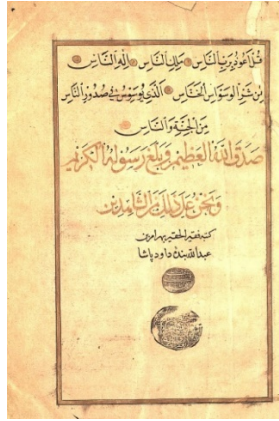 قُلْ أَعُوذُ بِرَبِّ النَّاسِ مَلِكِ النَّاسِ إِلَٰهِ النَّاسِ
مِن شَرِّ الْوَسْوَاسِ الْخَنَّاسِ الَّذِي يُوَسْوِسُ فِي صُدُورِ النَّاسِ
مِنَ الْجِنَّةِ وَالنَّاسِ
صَدَقَ اللهُ الْعَظِيمُ وَبَلَّغَ رَسُولُهُ الْكَرِيمُ
وَنَحْنُ عَلَى ذَلِكَ مِنَ الشَّاهِدِينَ
كتبه فقير الحقير بهرام بن
عبد الله بنده داود پاشا